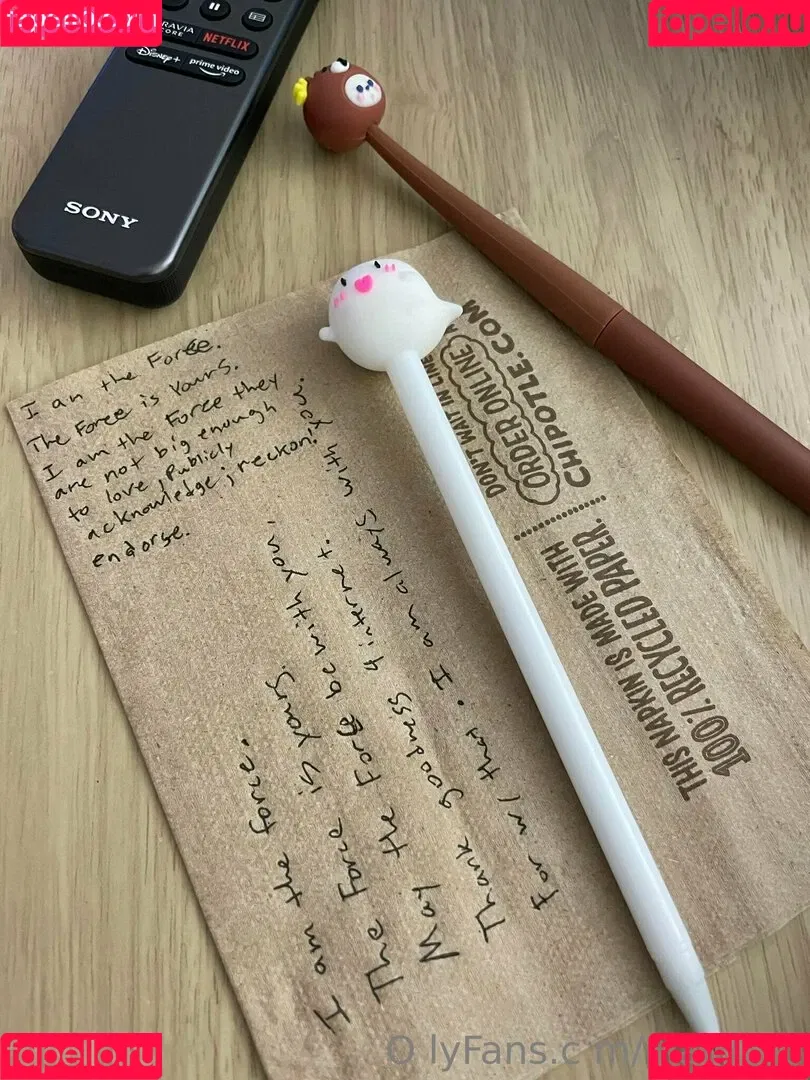 fapello.ru
fapello.ru
NETFLIX
Disney+
prime video
SONY
I am the Force.
The Force is Yours.
I am the Force they
are not big enough
to love, publicly
acknowledge, reckon,
endorse.
I am the force.
The Force is yours.
May the Force be with you.
Thank goodness 4 internet.
For w/ that. I am always with you.
DON'T WAIT IN LINE
ORDER ONLINE
CHIPOTLE.COM
THIS NAPKIN IS MADE WITH
100% RECYCLED PAPER.
fapello.ru
fapello.ru